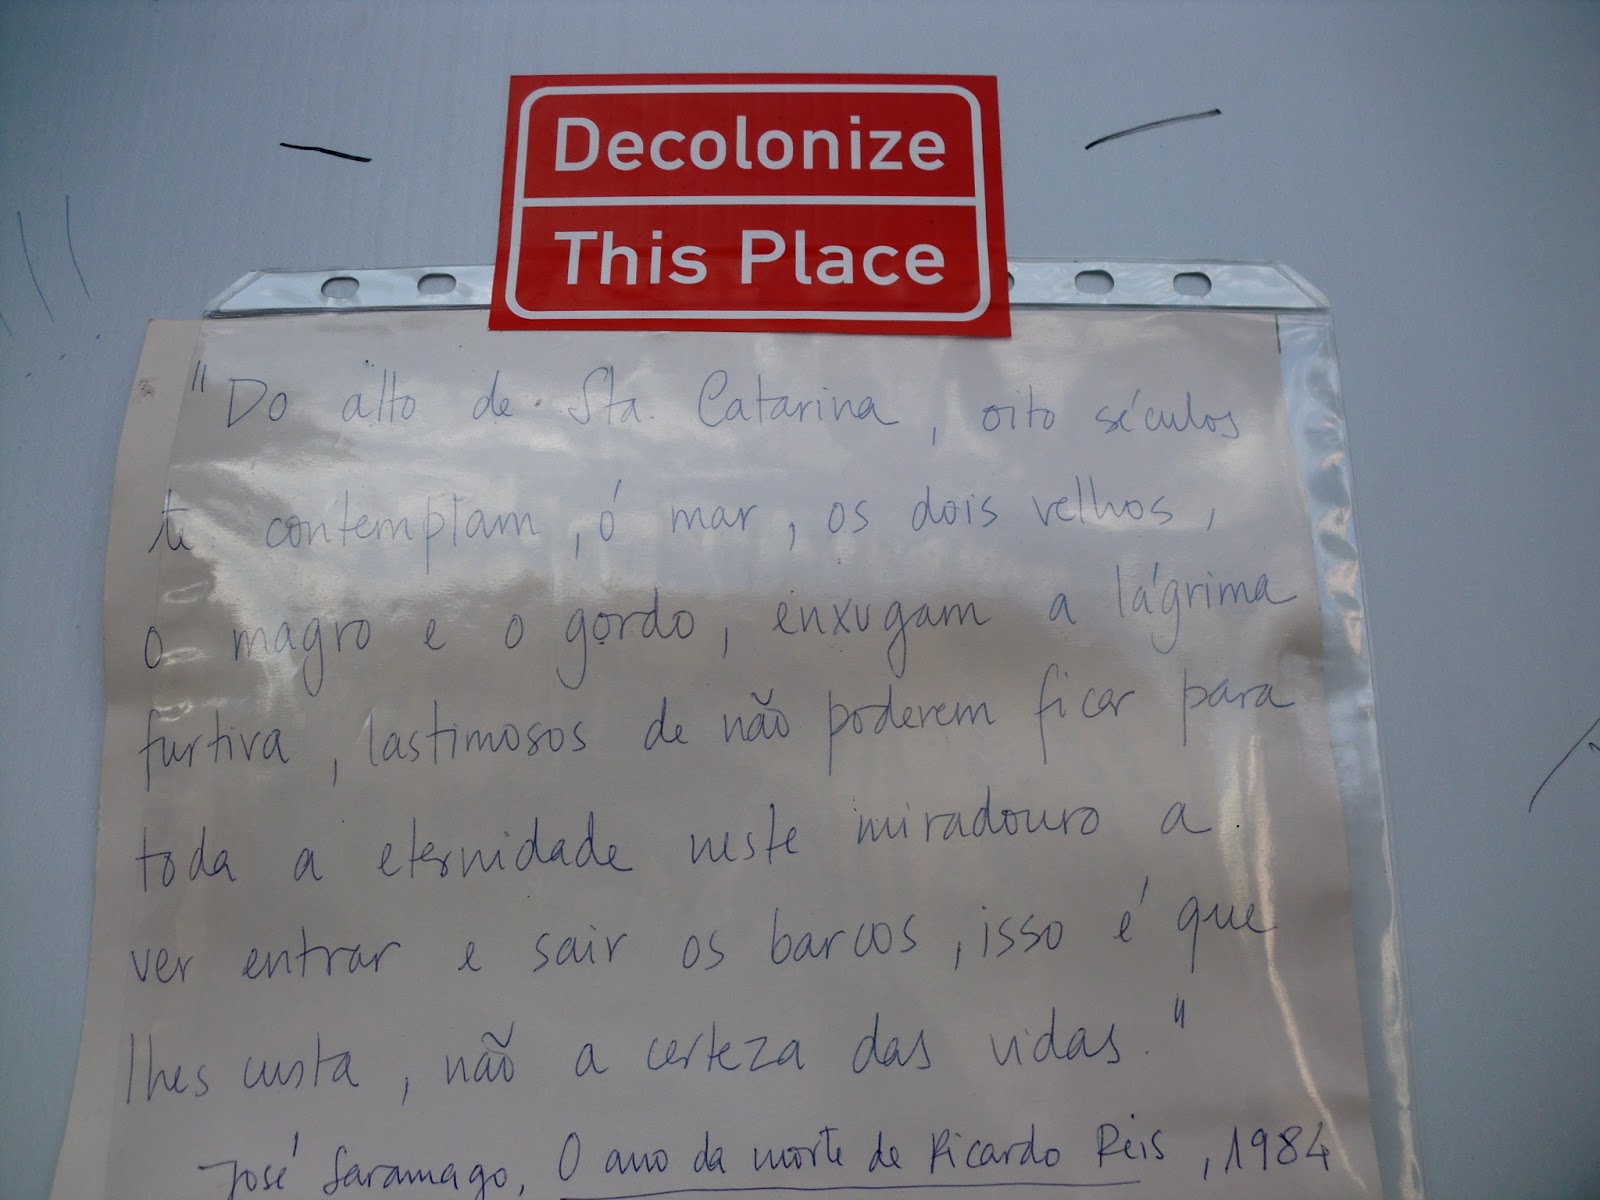 Decolonize
This Place
"Do alto de Sta. Catarina, oito séculos
te contemplam, ó mar, os dois velhos,
o magro e o gordo, enxugam a lágrima
furtiva, lastimosos de não poderem ficar para
toda a eternidade neste miradouro a
ver entrar e sair os barcos, isso é que
lhes custa, não a certeza das vidas."
José Saramago, O ano da morte de Ricardo Reis, 1984